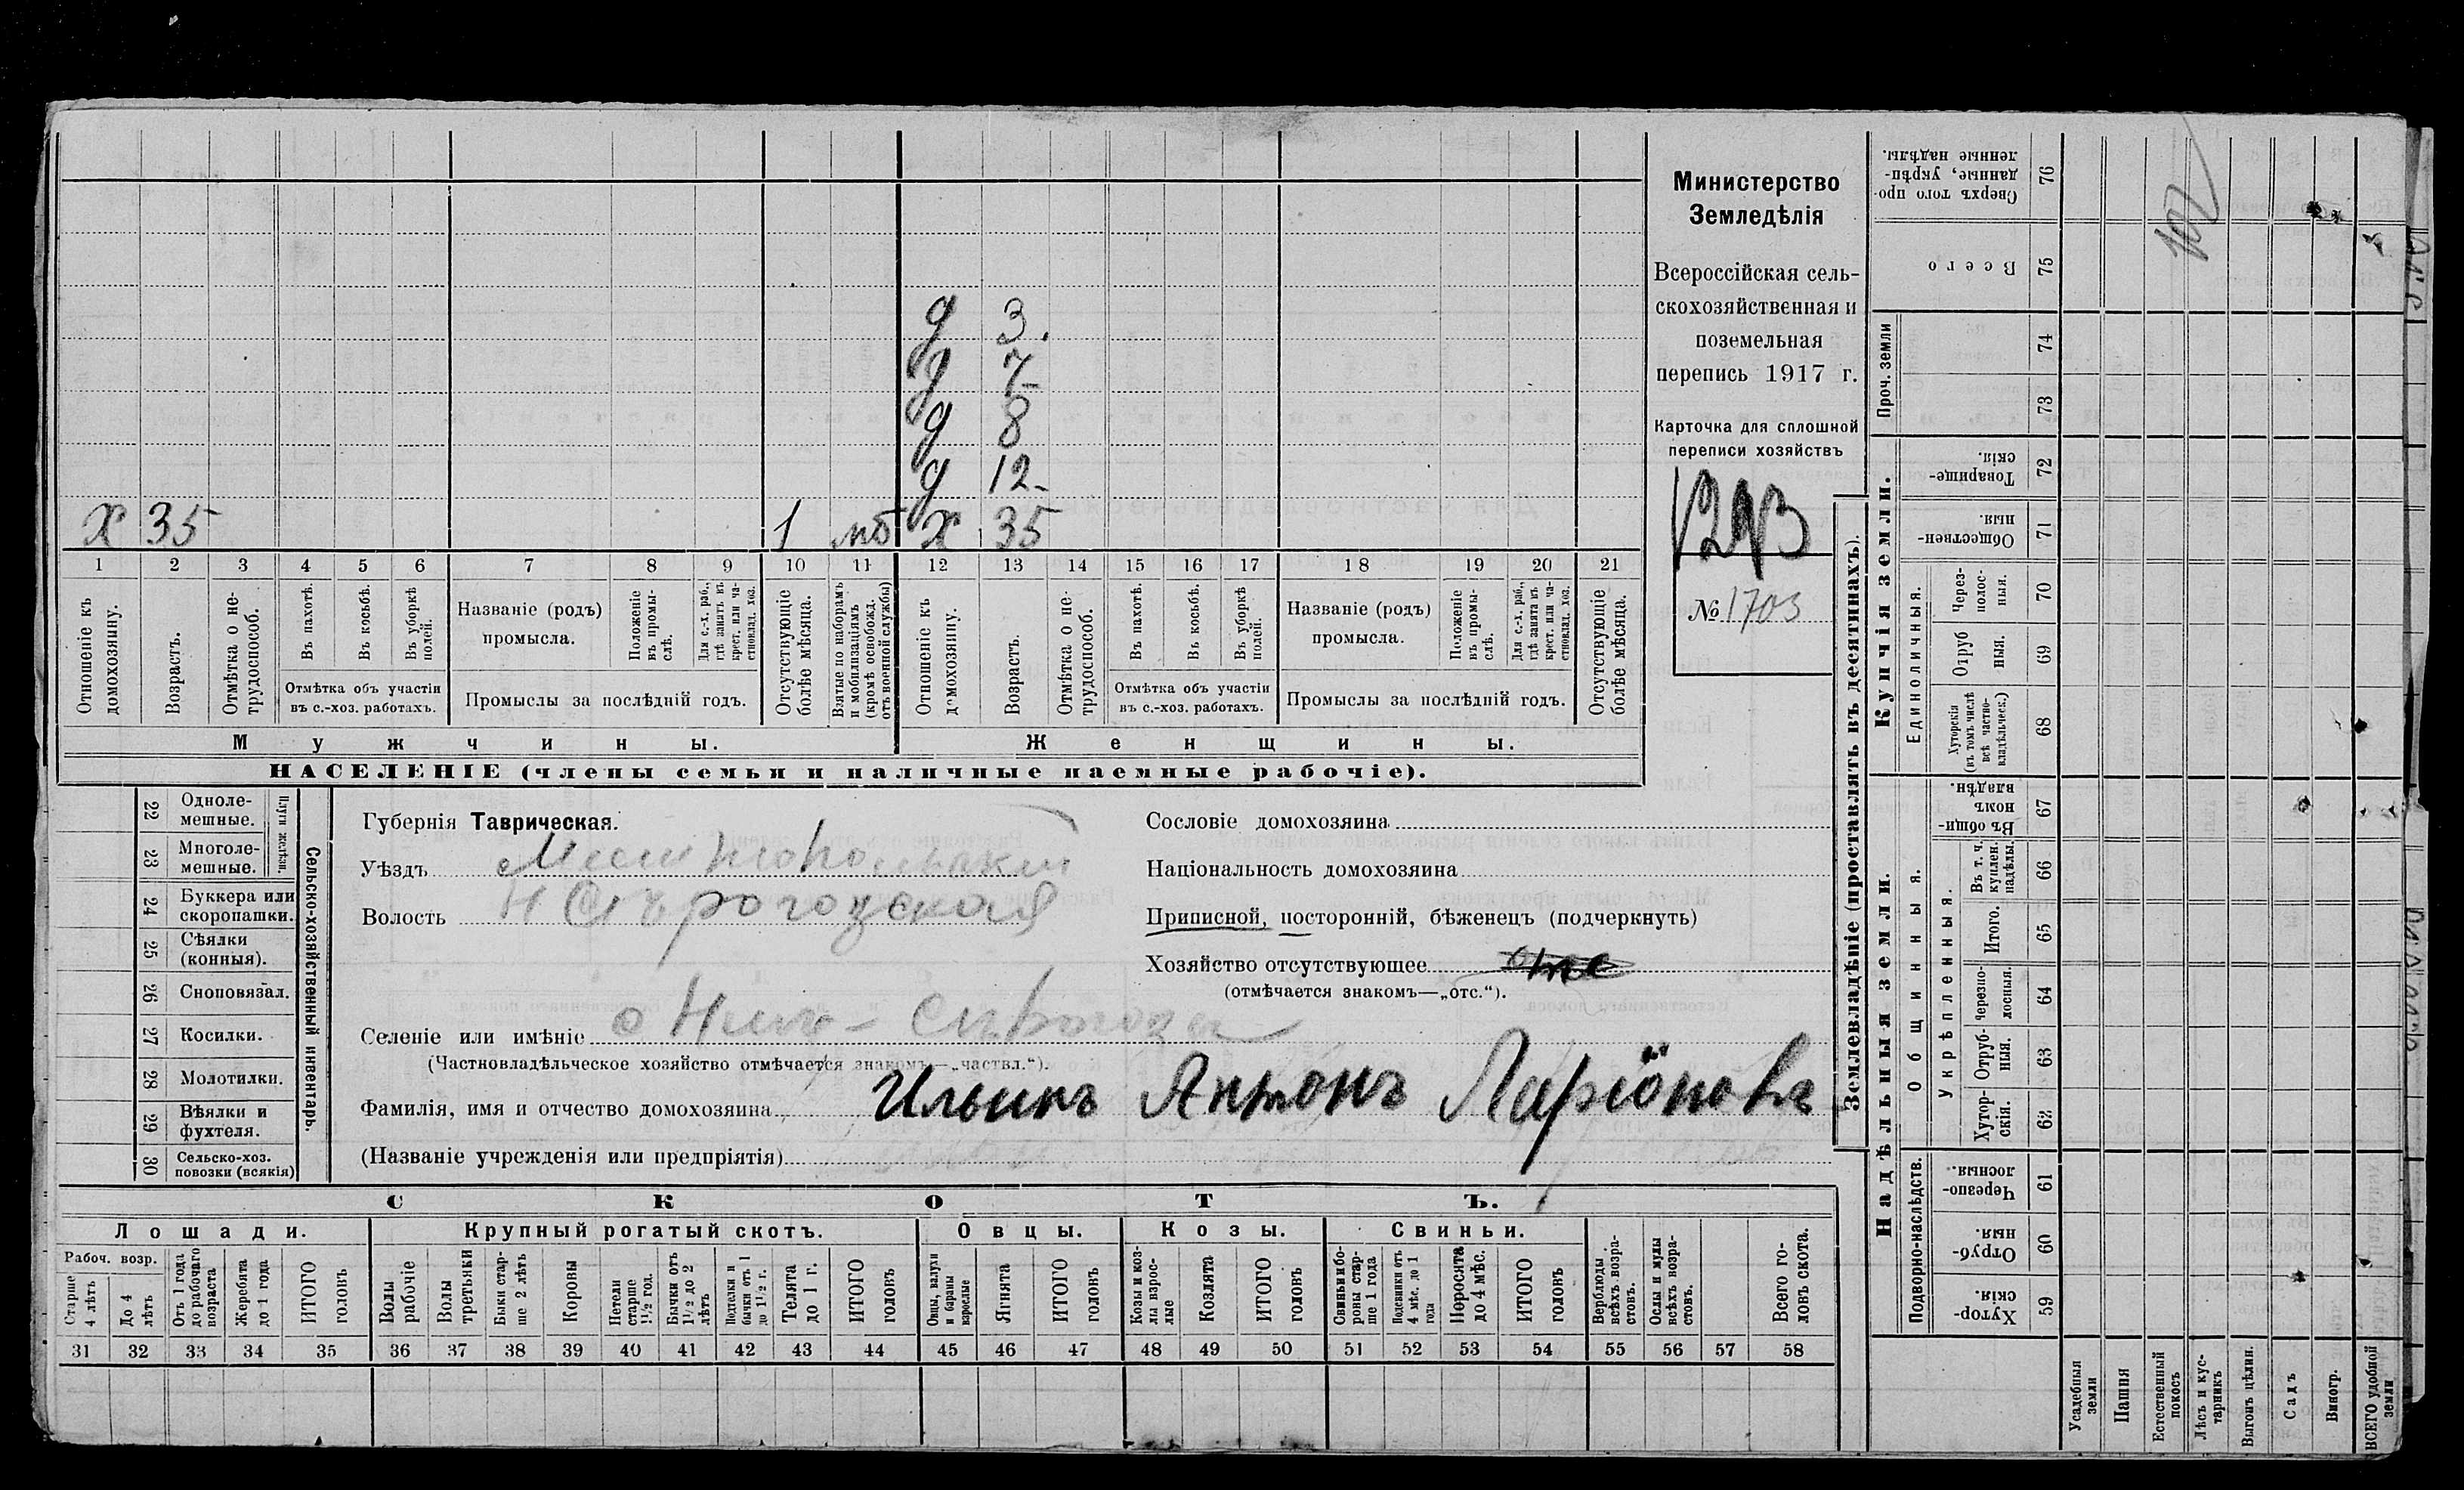 д 3.
д 7
д 8
д 12
х 35 1 мб х 35
1 2 3 4 5 6 7 8 9 10 11 12 13 14 15 16 17 18 19 20 21
Отношеніе къ домохозяину.
Возрастъ.
Отмѣтка о не-трудоспособ.
Въ пахотѣ.
Въ косьбѣ.
Въ уборкѣ полей.
Отмѣтка объ участіи
въ с.-хоз. работахъ.
Названіе (родъ)
промысла.
Положеніе въ промы-слѣ.
Для с.-х. раб., гдѣ занятъ въ крест. или ча-стновлад. хоз.
Промыслы за послѣдній годъ.
Отсутствующіе болѣе мѣсяца.
Взятые по наборамъ и мобилизаціямъ (кромѣ освобожд. отъ военной службы)
Отношеніе къ домохозяину.
Возрастъ.
Отмѣтка о не-трудоспособ.
Въ пахотѣ.
Въ косьбѣ.
Въ уборкѣ полей.
Отмѣтка объ участіи
въ с.-хоз. работахъ.
Названіе (родъ)
промысла.
Положеніе въ промы-слѣ.
Для с.-х. раб., гдѣ занята въ крест. или ча-стновлад. хоз.
Промыслы за послѣдній годъ.
Отсутствующіе болѣе мѣсяца.
Мужчины.
Женщины.
НАСЕЛЕНІЕ (члены семьи и наличные наемные рабочіе).
Министерство
Земледѣлія
Всероссійская сель-
скохозяйственная и
поземельная
перепись 1917 г.
Карточка для сплошной
переписи хозяйствъ
1293
№ 1703
22 Одноле-мешные.
23 Многоле-мешные.
Плуги желѣзн.
24 Буккера или скоропашки.
25 Сѣялки (конныя).
26 Сноповязал.
27 Косилки.
28 Молотилки.
29 Вѣялки и фухтеля.
30 Сельско-хоз. повозки (всякія)
Сельско-хозяйственный инвентарь.
Губернія Таврическая.
Уѣздъ Мелитопольскій
Волость Н Сѣрогозская
Селеніе или имѣніе Ниж- Сѣрогозы
(Частновладѣльческое хозяйство отмѣчается знакомъ—„частвл.“).
Фамилія, имя и отчество домохозяина Ильинъ Антонъ Ларіоновъ
(Названіе учрежденія или предпріятія)
Сословіе домохозяина
Національность домохозяина
Приписной, посторонній, бѣженецъ (подчеркнуть)
Хозяйство отсутствующее отс
(отмѣчается знакомъ—„отс.“).
СКОТЪ.
Лошади.
Крупный рогатый скотъ.
Овцы.
Козы.
Свиньи.
Рабоч. возр.
Старше 4 лѣтъ
До 4 лѣтъ
Отъ 1 года до рабочаго возраста
Жеребята до 1 года
ИТОГО головъ
Волы рабочіе
Волы третьяки
Быки стар-ше 2 лѣтъ
Коровы
Нетели старше 1½ год.
Бычки отъ 1½ до 2 лѣтъ
Подтелки и бычки отъ 1 до 1½ г.
Телята до 1 г.
ИТОГО головъ
Овцы, валухи и бараны взрослые
Ягнята
ИТОГО головъ
Козы и коз-лы взрос-лые
Козлята
ИТОГО головъ
Свиньи и бо-ровы стар-ше 1 года
Подсвинки отъ 4 мѣс. до 1 года
Поросята до 4 мѣс.
ИТОГО головъ
Верблюды всѣхъ возра-стовъ.
Ослы и мулы всѣхъ возра-стовъ.
Всего го-ловъ скота.
31 32 33 34 35 36 37 38 39 40 41 42 43 44 45 46 47 48 49 50 51 52 53 54 55 56 57 58
Землевладѣніе (проставлять въ десятинахъ).
Проч. земли
Купчія земли.
Единоличныя.
Надѣльныя земли.
Общинныя.
Укрѣпленныя.
Подворно-наслѣдств.
Сверхъ того про-данные, укрѣп-ленные надѣлы. 76
Всего 75
74
73
Товарище-скія. 72
Обществен-ныя. 71
Через-полос-ныя. 70
Отруб-ныя. 69
Хуторскія (въ томъ числѣ всѣ частно-владѣльческ.) 68
Въ общи-номъ владѣн. 67
Въ т. ч. куплен. надѣлы. 66
Итого. 65
Черезпо-лосныя. 64
Отруб-ныя. 63
Хутор-скія. 62
Черезпо-лосныя. 61
Отруб-ныя. 60
Хутор-скія. 59
Усадебныя земли
Пашня
Естественный покосъ
Лѣсъ и кус-тарникъ
Выгонъ цѣлин.
Садъ
Виногр.
ВСЕГО удобной земли